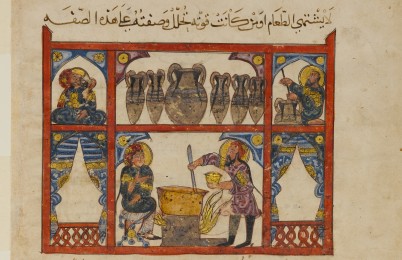 لا يشتهي الطعام او من كانت قوته تحلل وصفته على هذه الصفه